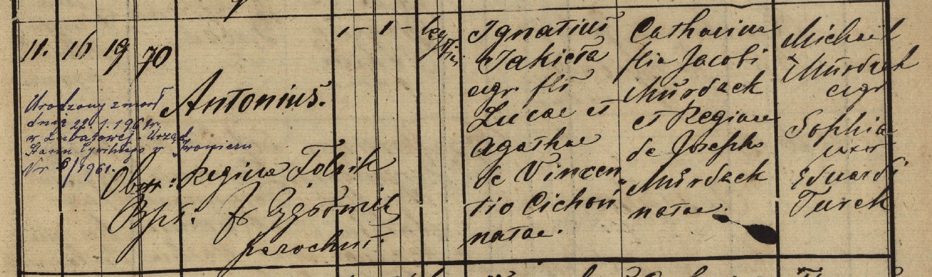 11. 16 19 70
Antonius.
1 - 1 - legitimi
Ignatius
Jakieła
agr. fil.
Lucae et
Agathae
de Vincen-
tio Cichoń
natae.
Catharina
filia Jacobi
Murdzek
et Reginae
de Josepho
Murdzek
natae.
Michael
Murdzek
agr
Sophia
uxor
Eduardi
Turek
Urodzony zmarł
dnia 22.1.1961 r.
w Lubatowej. Urząd
Stanu Cywilnego w Iwoniczu
Nr 2/1961.
Obst: Regina Tolsik
Bpt:
parochus.